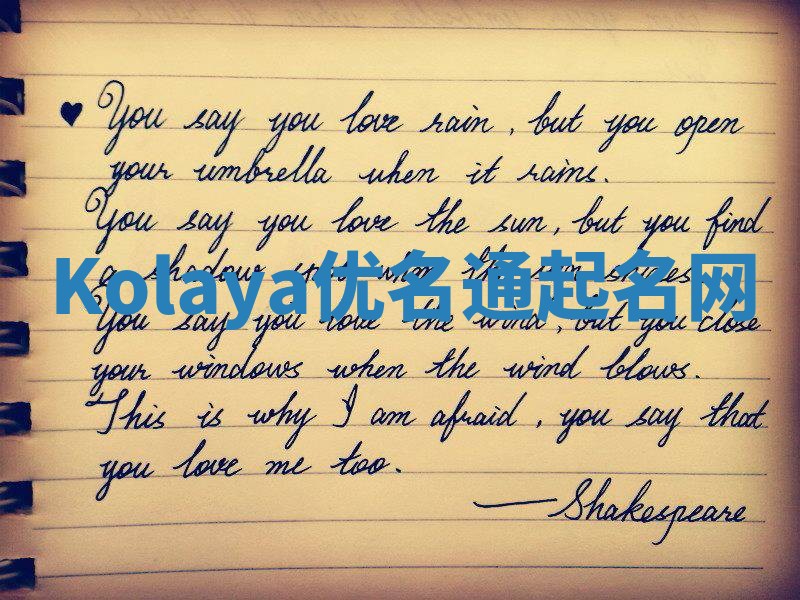 ♥ You say you love rain, but you open
your umbrella when it rains.
You say you love the sun, but you find
a shadow spot when the sun shines.
Kolaya优名通起名网
You say you love the wind, but you close
your windows when the wind blows.
This is why I am afraid, you say that
you love me too.
—Shakespeare